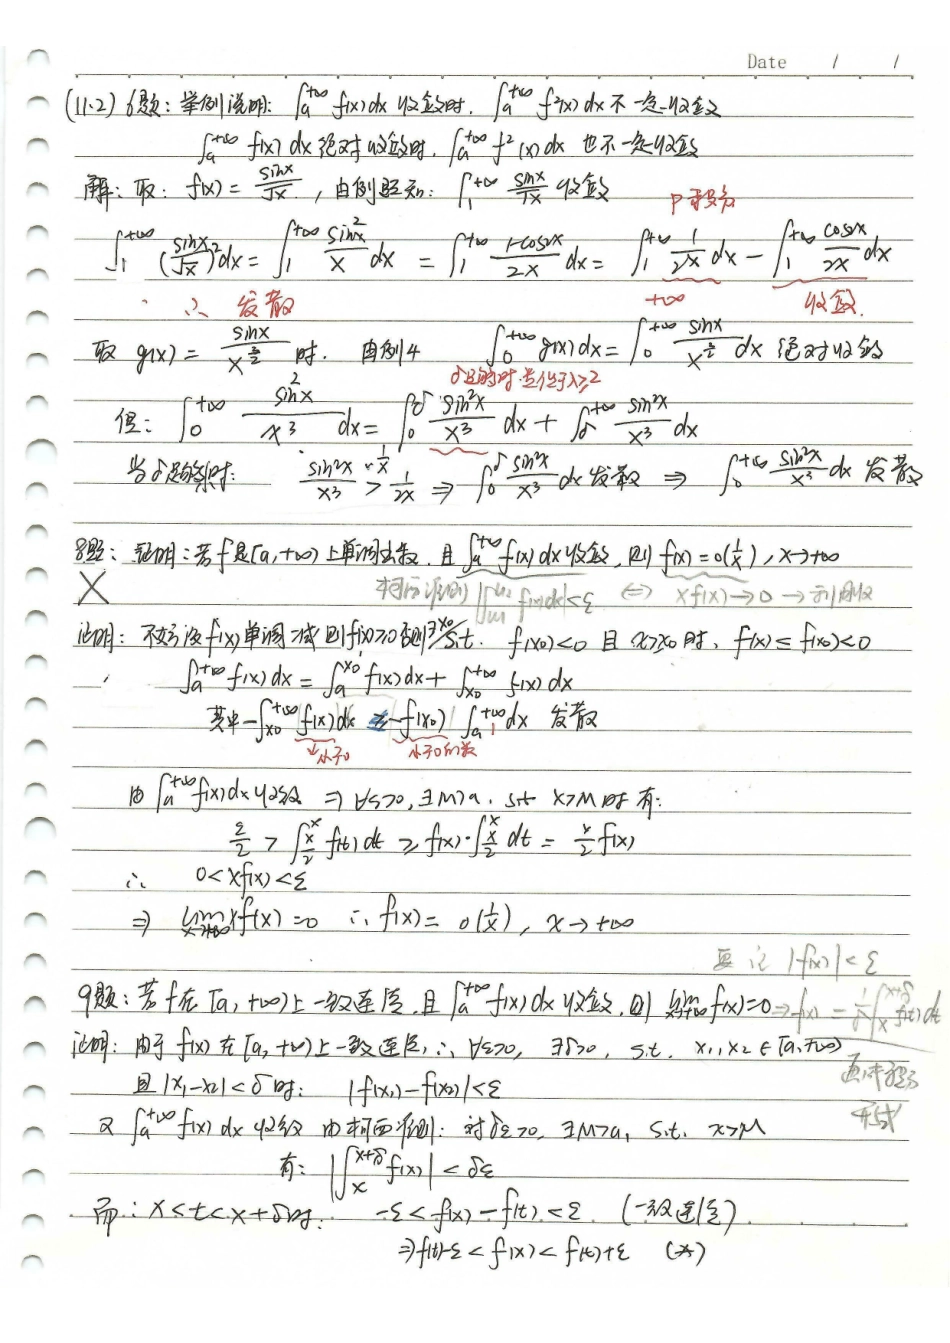 Date / /
(11.2) 6题: 举例说明: ∫_a^{+∞} f(x)dx 收敛时. ∫_a^{+∞} f²(x)dx 不一定收敛
∫_a^{+∞} f(x) dx 绝对收敛时, ∫_a^{+∞} f²(x)dx 也不一定收敛
解: 取: f(x) = sinx/√x , 由例题知: ∫_1^{+∞} sinx/√x 收敛
P积分
∫_1^{+∞} (sinx/√x)² dx = ∫_1^{+∞} sin²x/x dx = ∫_1^{+∞} (1-cos2x)/2x dx = ∫_1^{+∞} 1/2x dx - ∫_1^{+∞} cos2x/2x dx
∴ 发散 +∞ 收敛.
取 g(x) = sinx/x^{3/2} 时. 由例4 ∫_0^{+∞} g(x)dx = ∫_0^{+∞} sinx/x^{3/2} dx 绝对收敛
但: ∫_0^{+∞} sin²x/x³ dx = ∫_0^δ sin²x/x³ dx + ∫_δ^{+∞} sin²x/x³ dx
当δ足够小时: sin²x/x³ ~ 1/x > 1/2x ⇒ ∫_0^δ sin²x/x³ dx 发散 ⇒ ∫_0^{+∞} sin²x/x³ dx 发散
8题: 证明: 若f是[a,+∞)上单调函数, 且 ∫_a^{+∞} f(x)dx 收敛, 则 f(x) = o(1/x), x→+∞
柯西准则 |∫_{u1}^{u2} f(x)dx|<ε ⇔ xf(x)→0
证明: 不妨设 f(x) 单调减 则f(x)≥0 否则∃x₀ s.t. f(x₀)<0 且 x>x₀ 时, f(x)≤f(x₀)<0
∫_a^{+∞} f(x)dx = ∫_a^{x₀} f(x)dx + ∫_{x₀}^{+∞} f(x)dx
其中 -∫_{x₀}^{+∞} f(x)dx ≥ -f(x₀) ∫_a^{+∞} 1 dx 发散
小于0 小于0的数
由 ∫_a^{+∞} f(x)dx 收敛 ⇒ ∀ε>0, ∃M>a, s.t x>M 时 有:
ε/2 > ∫_{x/2}^x f(t)dt ≥ f(x)·∫_{x/2}^x dt = x/2 f(x)
∴ 0<xf(x)<ε
⇒ lim_{x→+∞} xf(x)=0 ∴ f(x) = o(1/x), x→+∞
要证 |f(x)|<ε
9题: 若f在[a,+∞)上一致连续, 且 ∫_a^{+∞} f(x)dx 收敛, 则 lim_{x→+∞} f(x)=0 ⇒ f(x) = 1/δ ∫_x^{x+δ} f(t)dt
证明: 由于 f(x) 在[a,+∞)上一致连续, ∴ ∀ε>0, ∃δ>0, s.t. x₁,x₂∈[a,+∞)
且 |x₁-x₂|<δ 时: |f(x₁)-f(x₂)|<ε
形式
又 ∫_a^{+∞} f(x)dx 收敛 由柯西准则: 对δε>0, ∃M>a, s.t. x>M
有: |∫_x^{x+δ} f(x)| < δε
而: x<t<x+δ时. -ε<f(x)-f(t)<ε. (一致连续)
⇒ f(t)-ε < f(x) < f(t)+ε (*)